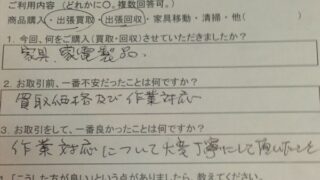 ご利用内容（どれかに○。複数回答可。）
商品購入・出張買取・出張回収・家具移動・清掃・他（
1. 今回、何をご購入（買取・回収）させていただきましたか？
家具、家電製品.
2. お取引前、一番不安だったことは何ですか？
買取価格及び作業対応
3. お取引をして、一番良かったことは何ですか？
作業対応について大変丁寧にして頂いたこと
「こうした方が良い」という点がありましたら、教えてください。